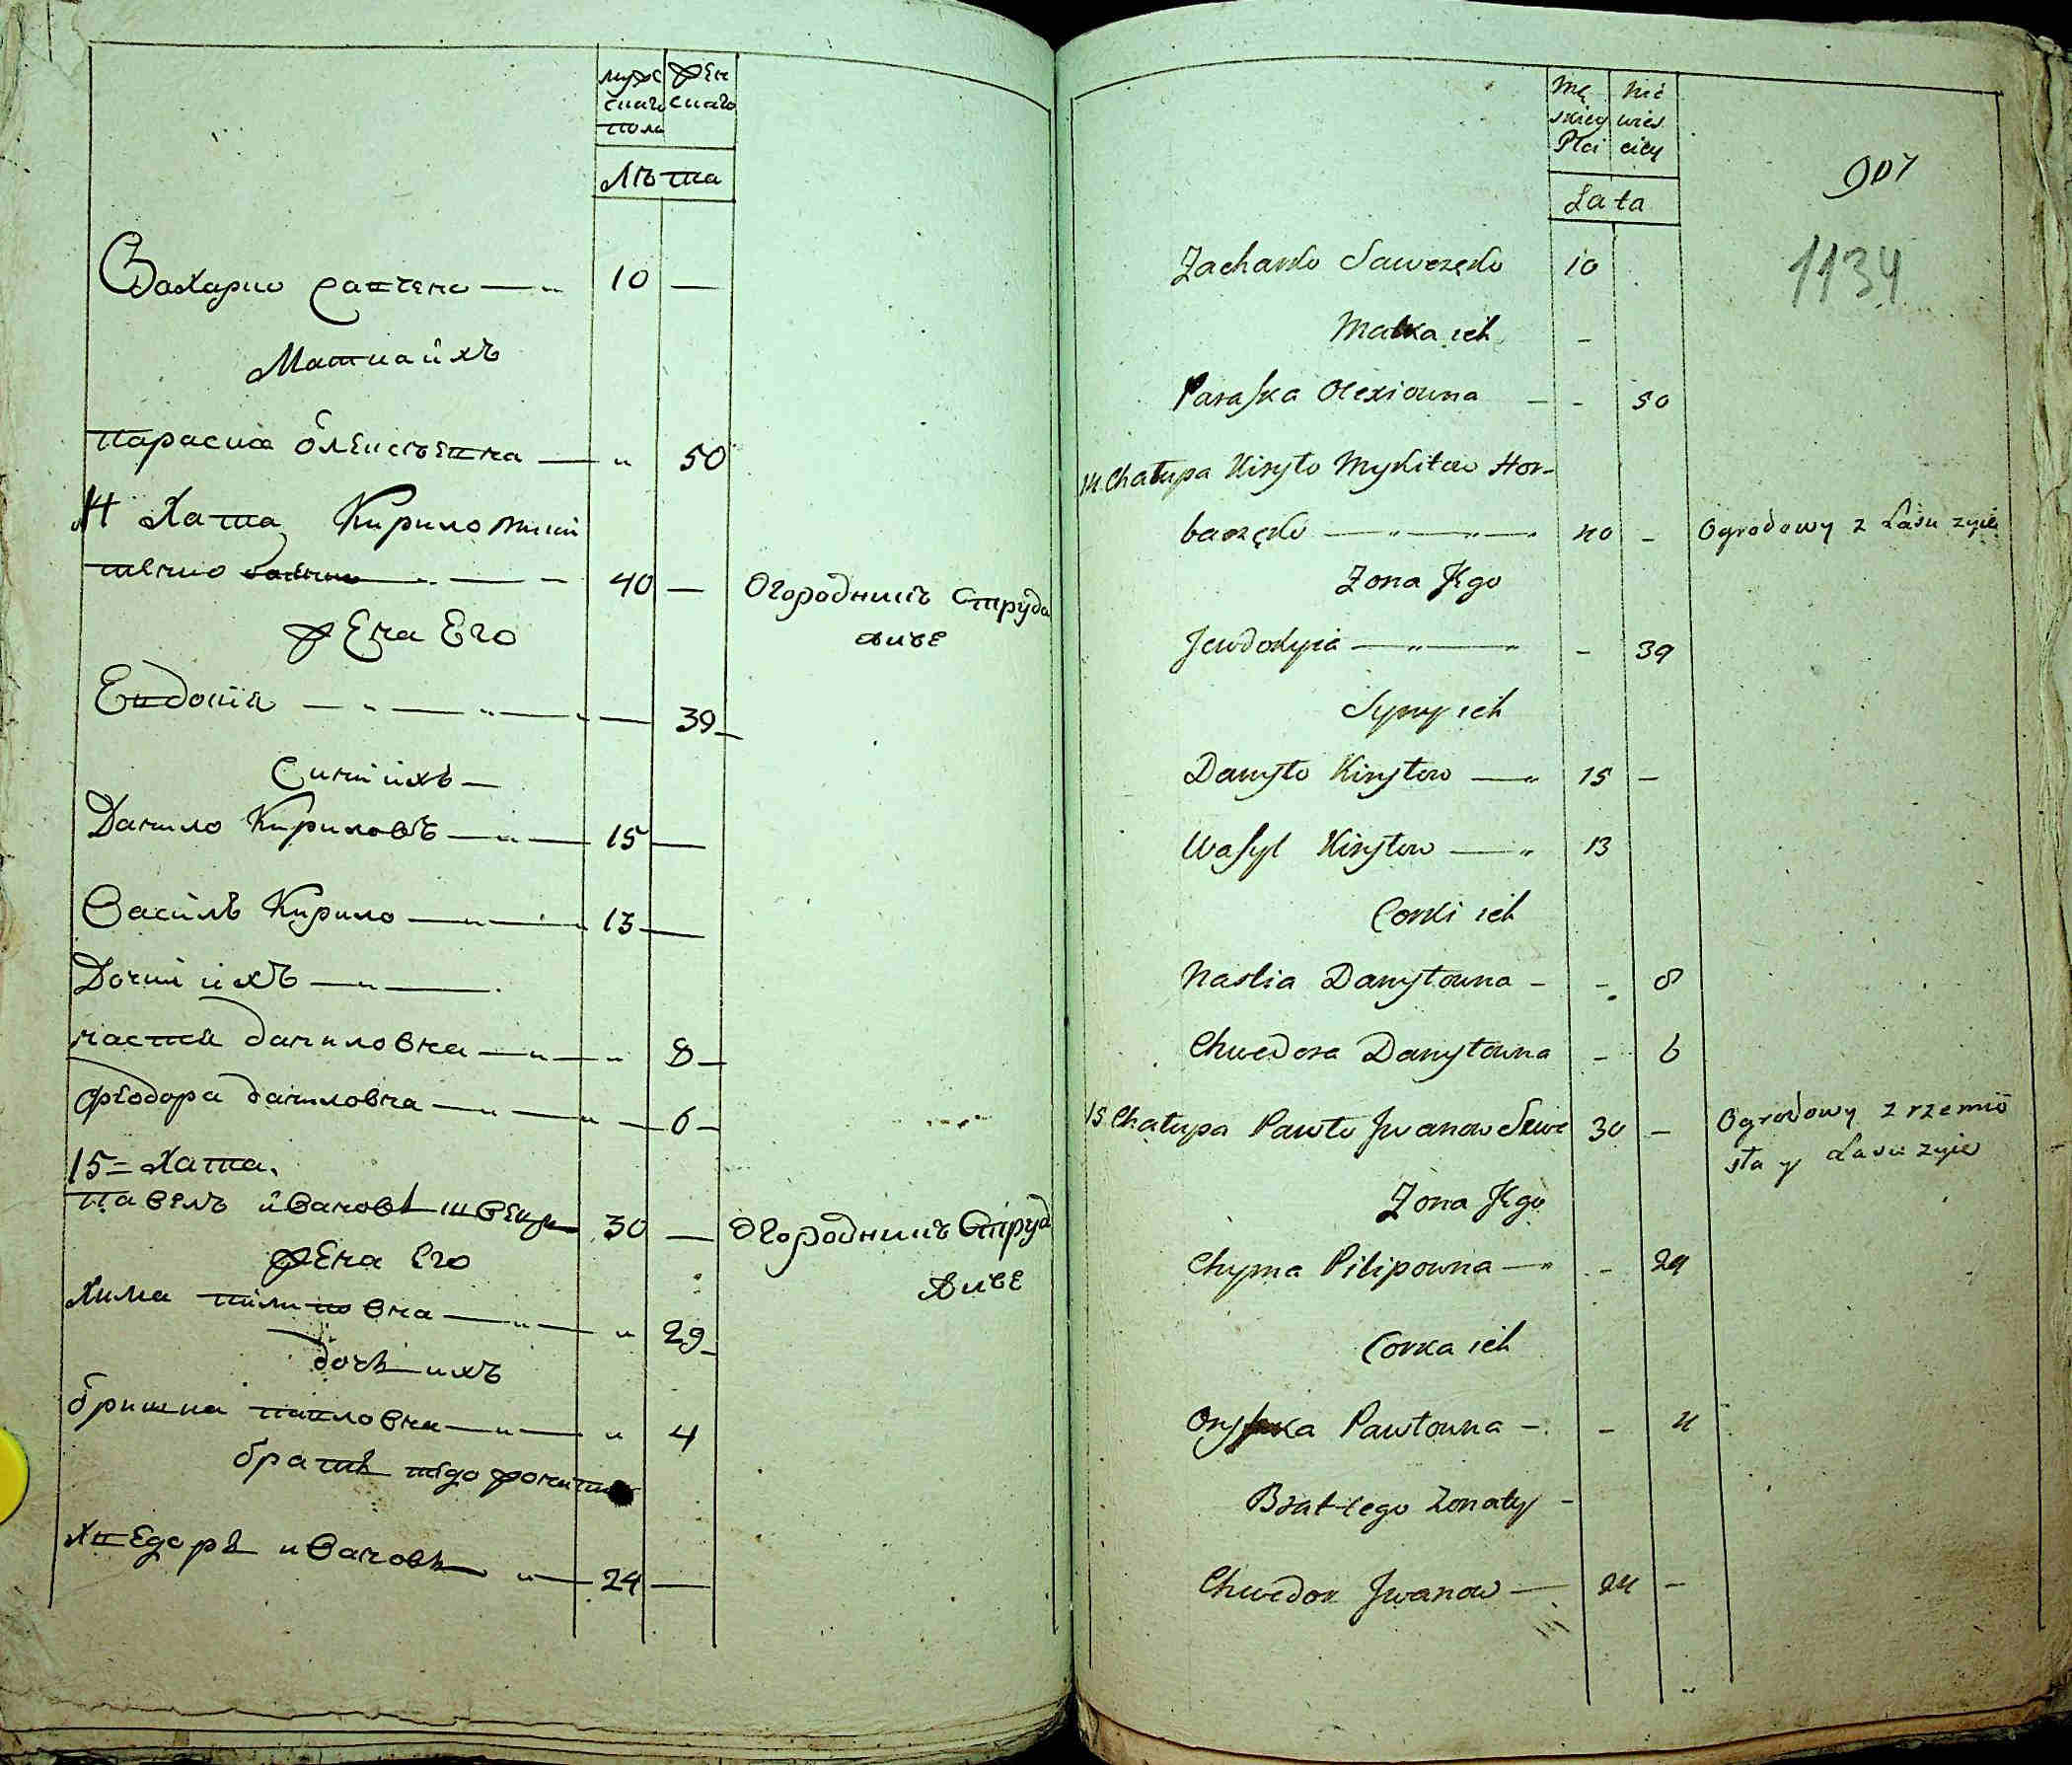 мужс жен
скаго скаго
пола
Лѣта
Захарко савченко 10 —
Матка ихъ
параска олексѣевна — " 50
14 Хата Кирило мики
40 — Огородникъ Струда
жена Его живе
Евдокия — " — " — 39
Сини ихъ —
Данило Кириловъ — " — 15 —
Василь Кирило — " — 13 —
Дочки ихъ — " —
настя даниловна — " — " 8 —
фѣодора даниловна — " — " — 6 —
15 = Хата.
павелъ ивановъ швец 30 — огородникъ Струд
жена Его живе
Хима пилиповна — " — " 29
дочь ихъ
оришка павловна — " — " 4
братъ тего жонати
хведоръ ивановъ " — 24 —
Mę Nie
skiey wies
Płci ciey
Lata
907
1134
Zacharko Sawczęko 10
Matka ich -
Paraska Olexiowna — - 50
14. Chałupa Kiryło Mykitow Hor-
baczęko — " — " — 40 - Ogrodowy z Lasu zyie
Zona Jego
Jewdokyia — " — - 39
Syny ich
Danyło Kiryłow — " 15 —
Wasyl Kiryłow — " 13
Corki ich
Nastia Danyłowna - - 8
Chwedora Danyłowna - 6
15 Chałupa Pawło Jwanow Szwe 30 — Ogrodowy z rzemio
sła y Lasu zyie
Zona Jego
Chyma Pilipowna — " - 29
Corka ich
Oryszka Pawłowna - - 4
Brat iego Zonaty -
Chwedor Jwanow — 24 —